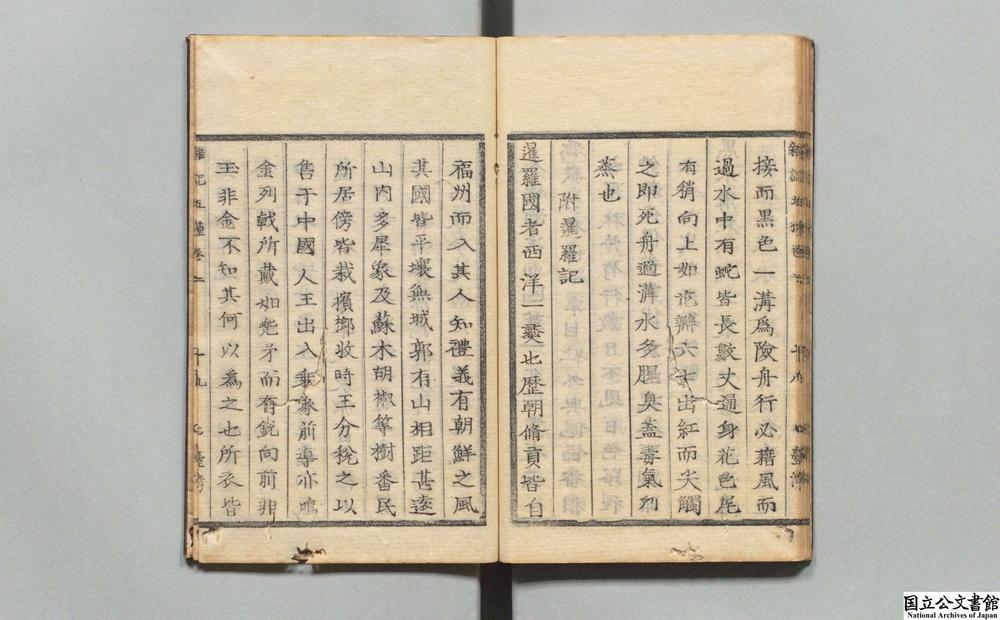 接而黑色一溝爲險舟行必藉風而
過水中有蛇皆長數丈通身花色尾
有稍向上如花瓣六七出紅而尖觸
之即死舟過溝水多腥臭蓋毒氣所
蒸也
附暹羅記
暹羅國者西洋一大也歷朝脩貢皆自
福州而入其人知禮義有朝鮮之風
其國皆平壤無城郭有山相距甚遠
山内多犀象及蘇木胡椒等樹番民
所居傍皆栽檳榔收時王分稅之以
售于中國人王出入乘象前導亦鳴
金列戟所戴如兜矛而脊銳向前非
玉非金不知其何以爲之也所衣皆
雜記五種卷二
十九
十八
臺灣
国立公文書館
National Archives of Japan